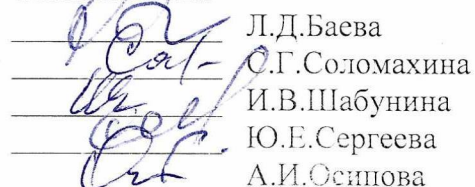 Л.Д.Баева
С.Г.Соломахина
И.В.Шабунина
Ю.Е.Сергеева
А.И.Осипова